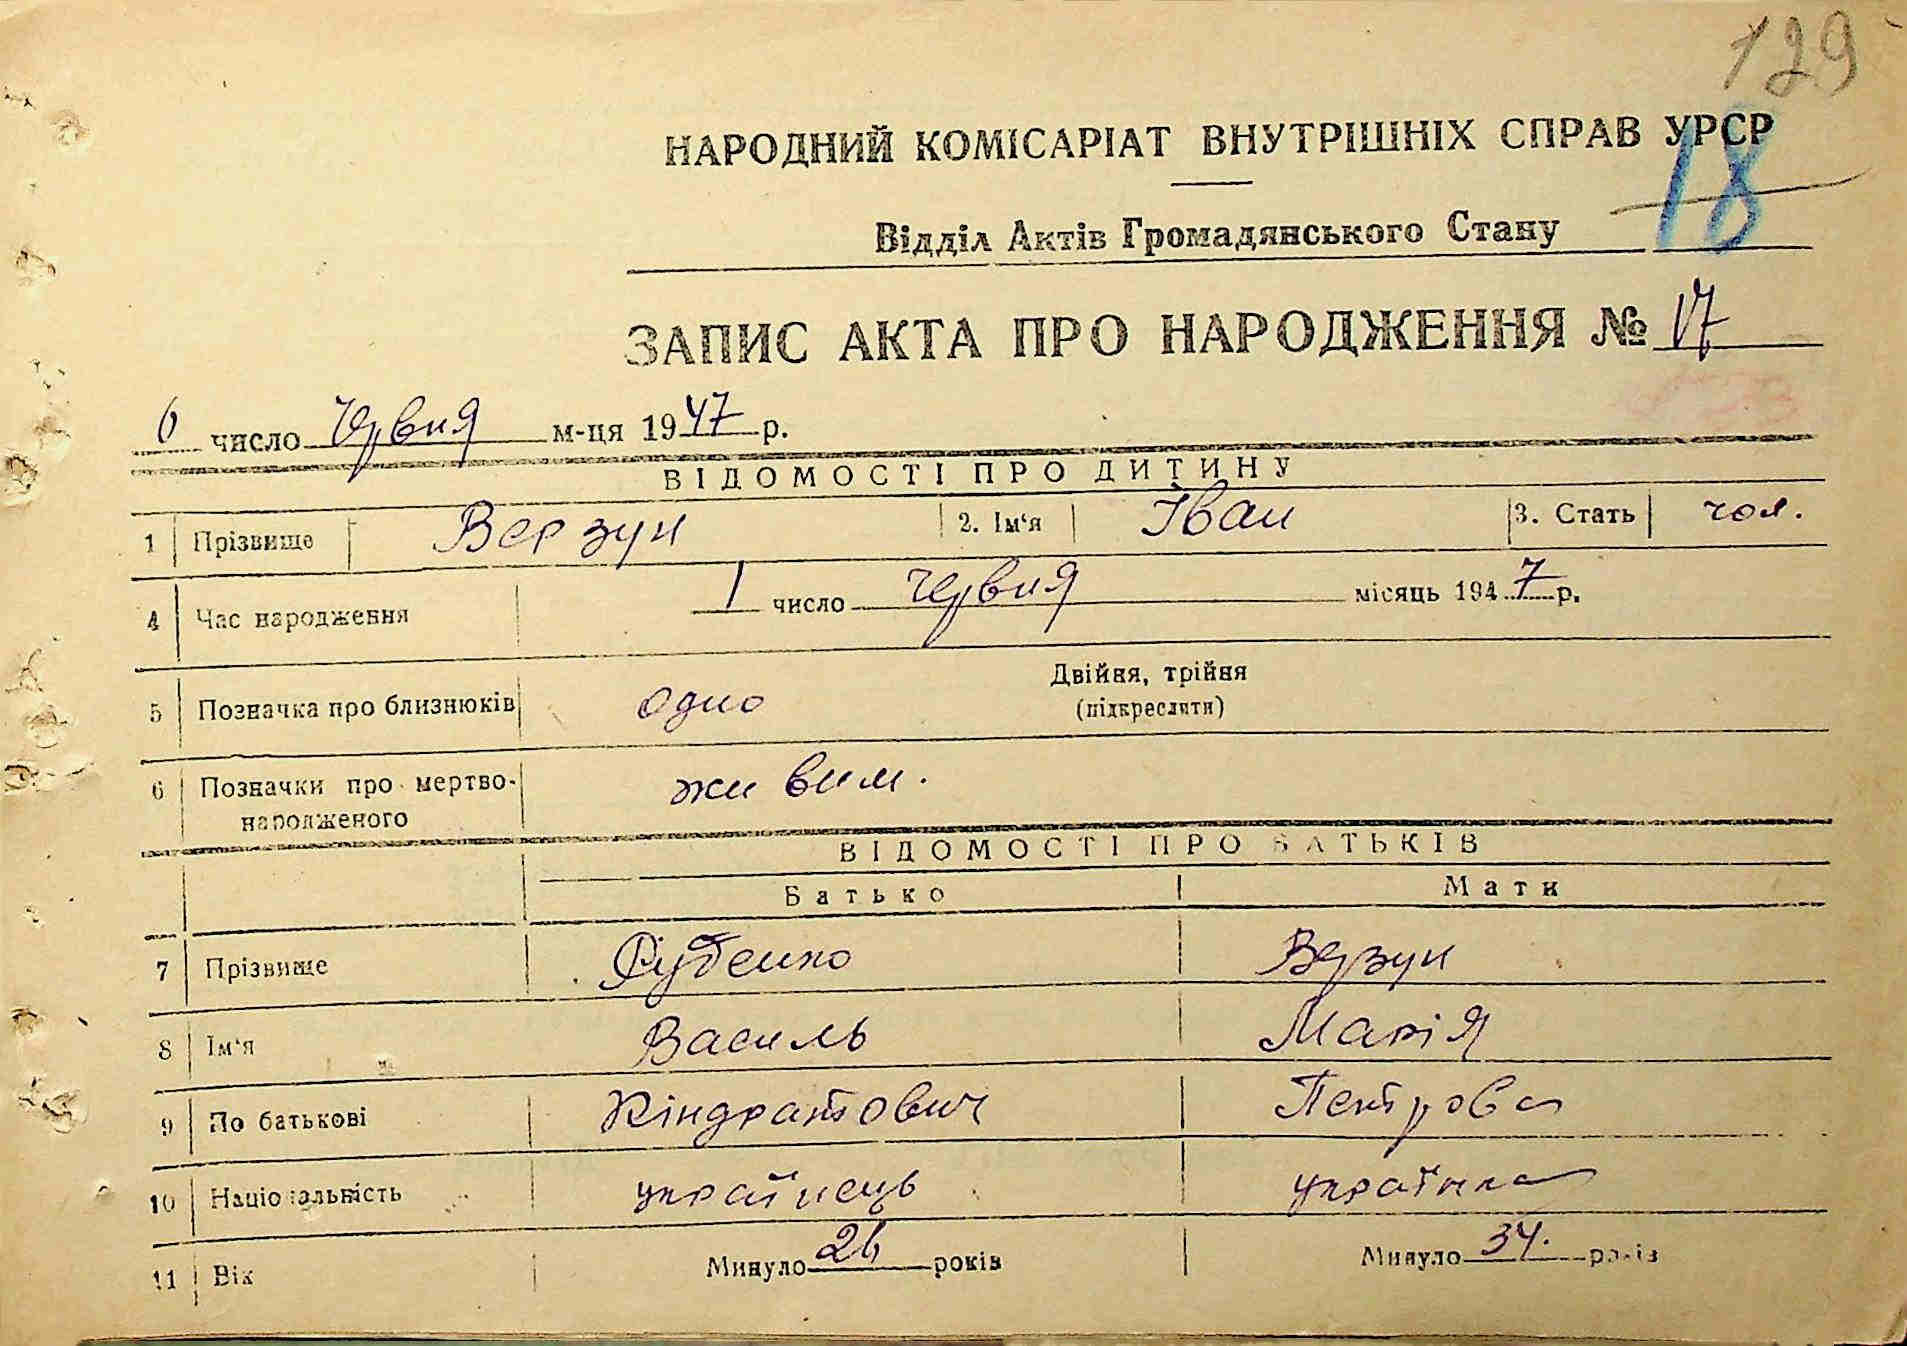 129
НАРОДНИЙ КОМІСАРІАТ ВНУТРІШНІХ СПРАВ УРСР
18
Відділ Актів Громадянського Стану
ЗАПИС АКТА ПРО НАРОДЖЕННЯ № 17
6 число червня м-ця 1947 р.
ВІДОМОСТІ ПРО ДИТИНУ
1 Прізвище Верзун 2. Ім'я Іван 3. Стать чол.
4 Час народження 1 число червня місяць 1947 р.
5 Позначка про близнюків одно Двійня, трійня (підкреслити)
6 Позначки про мертво-народженого живим.
ВІДОМОСТІ ПРО БАТЬКІВ
Батько Мати
7 Прізвище Рубенко Верзун
8 Ім'я Василь Марія
9 По батькові Кіндратович Петрова
10 Національність українець українка
11 Вік Минуло 26 років Минуло 34. років